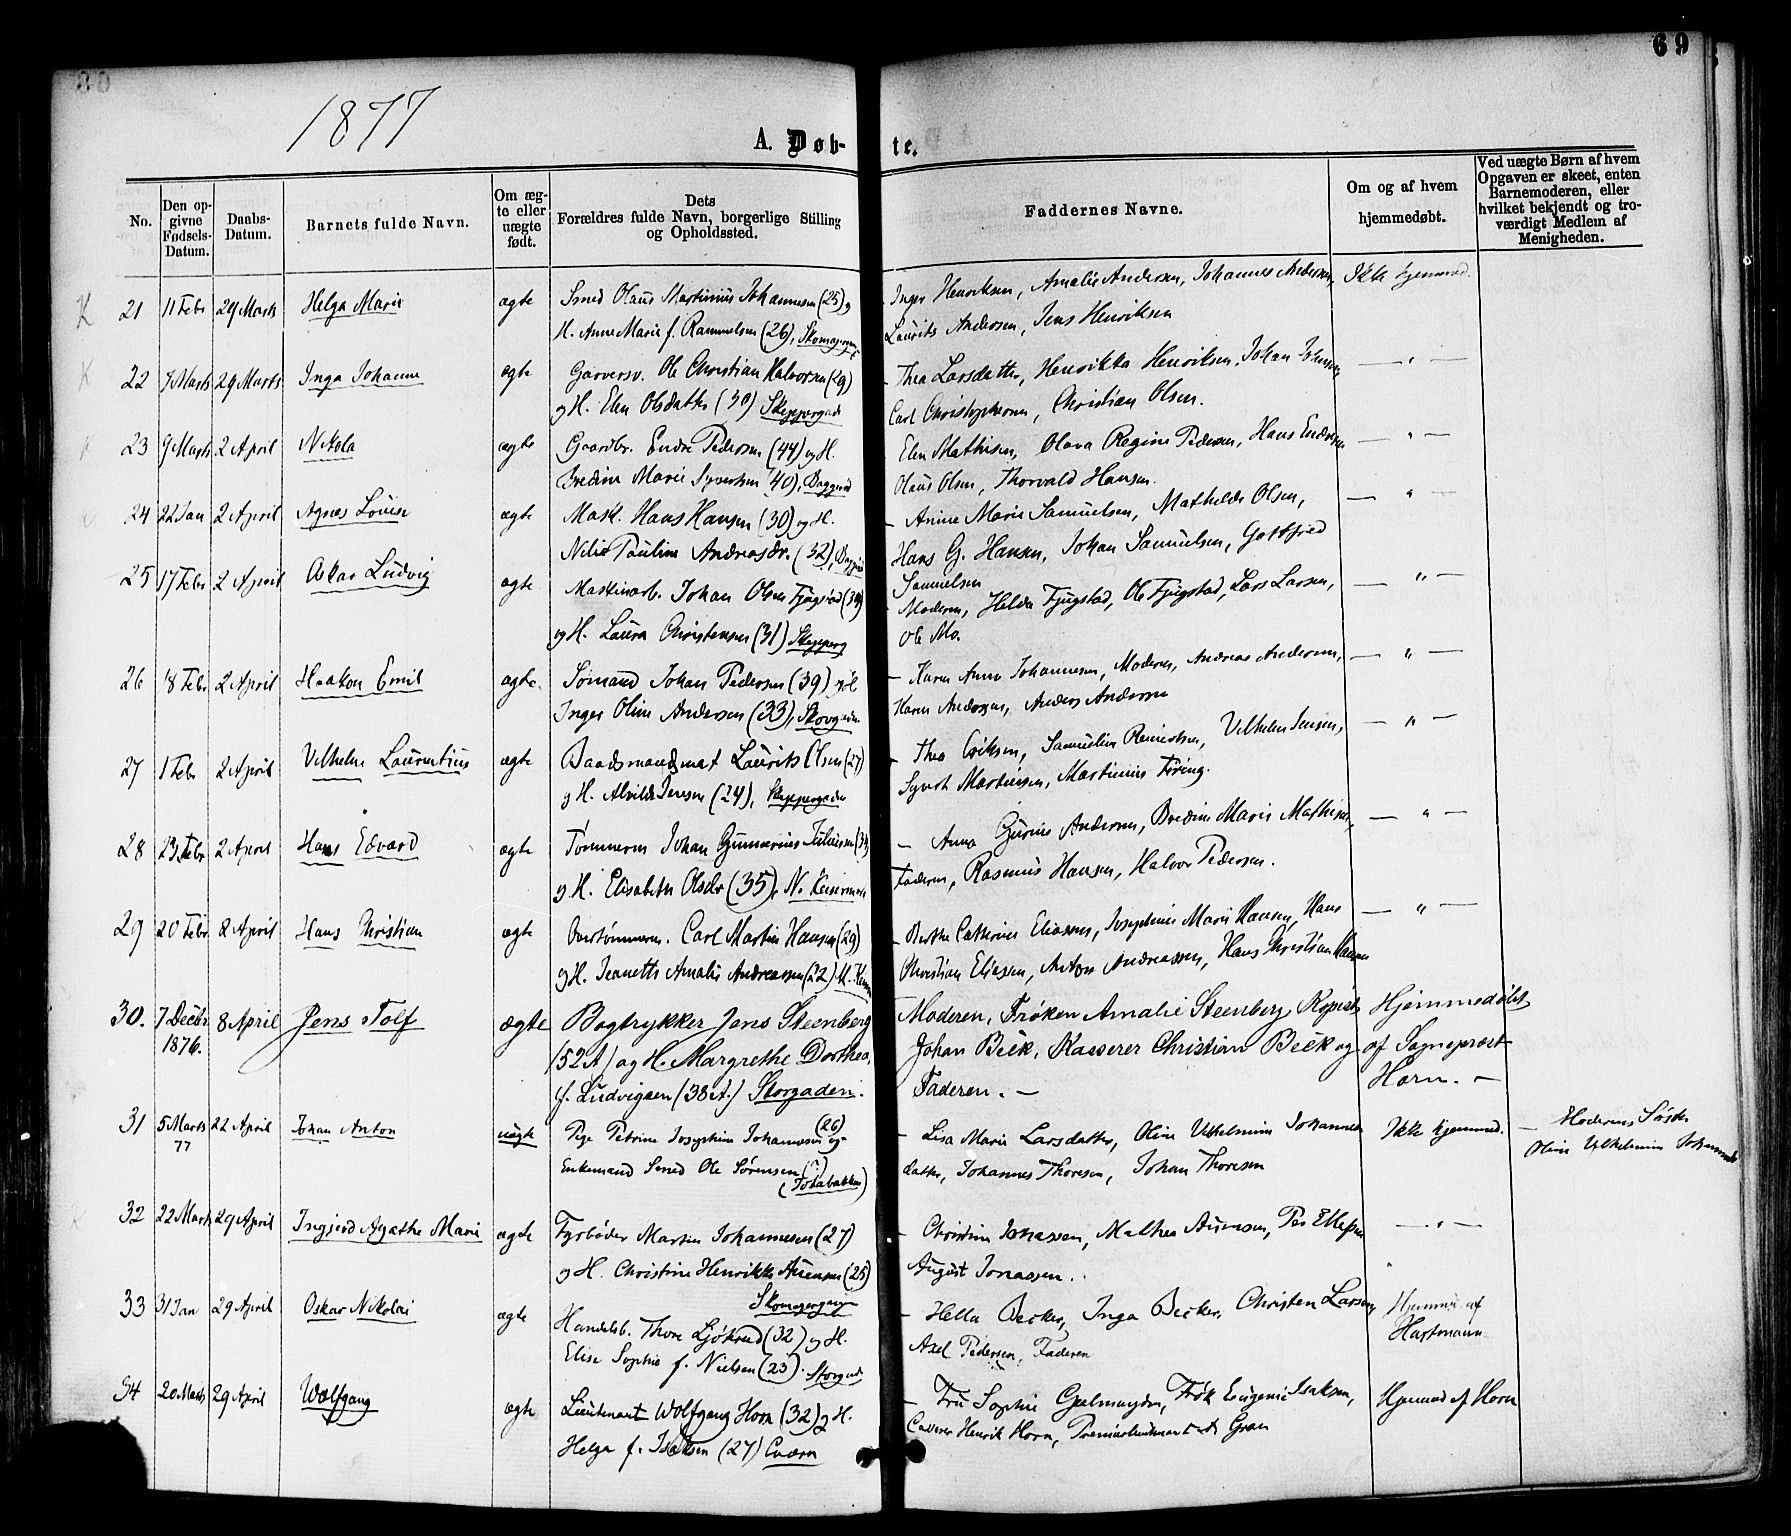 69
1877
A. Døb- te.
No.
Den opgivne Fødsels-Datum.
Daabs-Datum.
Barnets fulde Navn.
Om ægte eller uægte født.
Dets Forældres fulde Navn, borgerlige Stilling og Opholdssted.
Faddernes Navne.
Om og af hvem hjemmedøbt.
Ved uægte Børn af hvem Opgaven er skeet, enten Barnemoderen, eller hvilket bekjendt og troværdigt Medlem af Menigheden.
K 21 11 Febr 29 Marts Helga Marie ægte Smed Olaus Martinius Johannesen (25) og - Inger Henriksen, Amalie Andersen, Johannes Andersen, Ikke hjemmed.
H. Anne Marie f. Rammelsen (26), Laurits Andersen, Jens Henriksen
K 22 7 Marts 29 Marts Inga Johanne ægte Garversv. Ole Christian Halvorsen (29) - Thea Larsdatter, Henrikka Henriksen, Johan Johnsen — " —
og H. Elen Olsdatter (30) Skippergade Carl Christophersen, Christian Olsen.
K 23 9 Marts 2 April Nikola ægte Gaardbr. Endre Pedersen (44) og H. Elen Mathisen, Olava Regine Pedersen, Hans Endresen — " —
Bredine Marie Syvertsen (40), Baggerød Olaus Olsen, Thorvald Hansen.
24 22 Jan 2 April Agnes Louise ægte Mask. Hans Hansen (30) og H. - Anine Marie Samuelsen, Mathilde Olsen, — " —
Pauline Andreasdr. (32), Hans G. Hansen, Johan Samuelsen, Gottfried
Samuelsen
25 17 Febr 2 April Oskar Ludvig ægte Maskinarb. Johan Olsen Fjugstad (34) - Moderen, Helda Fjugstad, Ole Fjugstad, Lars Larsen, — " —
og H. Laura Christensen (31) Skipperg Ole Mo.
26 18 Febr 2 April Haakon Emil ægte. Sømand Johan Pedersen (39) og H. - Karen Anna Johannesen, Moderen, Andreas Andersen, — " —
Inger Oline Andersen (33), Skovgaden Haren Andersen, Anders Andersen
27 1 Febr 2 April Vilhelm Laurentius ægte Baadsmandsmat Laurits Olsen (27) - Thea Eriksen, Samueline Reinertsen, Vilhelm Jensen, — " —
og H. Alvilde Jensen (24), Skippergaden Syvert Martinsen, Martinius Føring.
28 23 Febr 2 April Hans Edvard ægte Tømmerm Johan Gunnerius Juliussen (34) - Anna Gurine Andersen, Bredine Marie Mathisen, — " —
og H. Elisabeth Olsdr (35), N. Keisemark Faderen, Rasmus Hansen, Halvor Pedersen.
29 20 Febr 8 April Hans Christian ægte Overtømmerm. Carl Martin Hansen (29) - Berthe Cathrine Eliassen, Josephine Marie Hansen, Hans — " —
og H. Jeanette Amalie Andreassen (22) Christian Eliassen, Anton Andreassen, Hans Christian Hansen
30. 7 Decbr 8 April Jens Tolf ægte Bogtrykker Jens Steenberg - Moderen, Frøken Amalie Steenberg Kopist Hjemmedøbt
1876. (52 A) og H. Margrethe Dorthea, Johan Beck, Kasserer Christian Beck og af Sognepræst
f. Ludvigsen (38 A.) Storgaden. Faderen. — Horn. —
31 5 Marts 22 April Johan Anton uægte Pige Petrine Josephine Johannesen (26) og - Lisa Marie Larsdatter, Oline Vilhelmine Johannes- Ikke hjemmed. - Moderens Søster
77 Enkemand Smed Ole Sørensen (Tokabakken) datter, Johannes Thoresen, Johan Thoresen Oline Vilhelmine
32 22 Marts 29 April Ingjerd Agathe Marie ægte Fyrbøder Martin Johannesen (27) - Christine Jonassen, Mathea Auensen, Per Ellefsen — " —
og H. Christine Henrikke Auensen (25) August Jonassen.
Skomagergangen
33 31 Jan 29 April Oskar Nikolai ægte Handelsb. Thore Ljøkrud (32) og H. - Hella Becker, Inga Becker, Christen Larsen, Hjemme af
Elise Sophie f. Nielsen (23). Storgade Axel Pedersen, Faderen Hartmann
34 20 Marts 29 April Wolfgang ægte Lieutenant Wolfgang Horn (32) og H. - Fru Sophie Gjelmuyden, Frøk Eugenie Isaksen, Hjemmed af Horn
Helga f. Isaksen (27) Henrik Horn, Premierlieutenant Gran